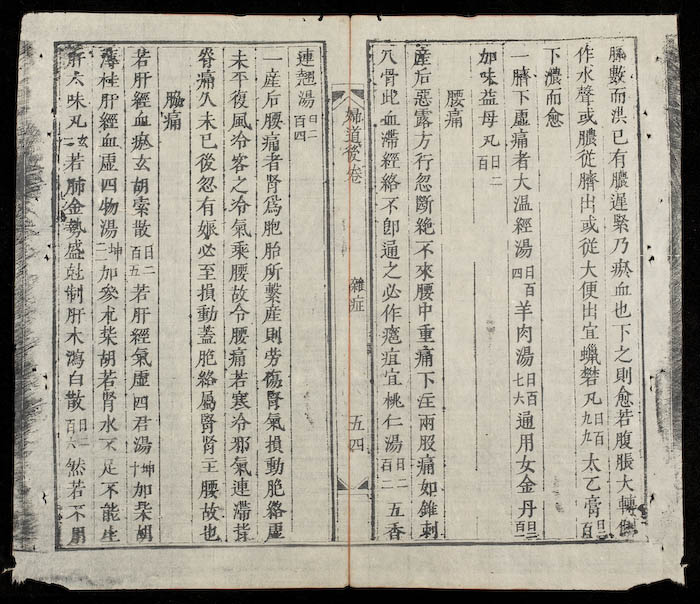 脈數而洪已有膿遲緊乃瘀血也下之則愈若腹脹大轉側
作水聲或膿從臍出或從大便出宜蠟礬丸日百九九太乙膏日二百
下濃而愈
一臍下虛痛者大溫經湯日百四羊肉湯日百七六通用女金丹日二百一
加味益母丸日二百
腰痛
産后惡露方行忽斷絕不來腰中重痛下注兩股痛如錐刺
入骨此血滯經絡不卽通之必作癰疽宜桃仁湯日二百二五香
婦道後卷
雜症
五四
連翹湯日二百四
一産后腰痛者腎爲胞胎所繫産則劳傷腎氣損動胞絡虛
未平復風冷客之冷氣乘腰故令腰痛若寒冷邪氣連滯背
脊痛久未已後忽有娠必至損動蓋胞絡屬腎腎主腰故也
脇痛
若肝經血瘀玄胡索散日二百五若肝經氣虛四君湯坤十加柴胡
薄桂肝經血虛四物湯坤二一加參朮柴胡若腎水不足不能生
肝六味丸玄若肺金勢盛尅制肝木瀉白散日二百六然若不用